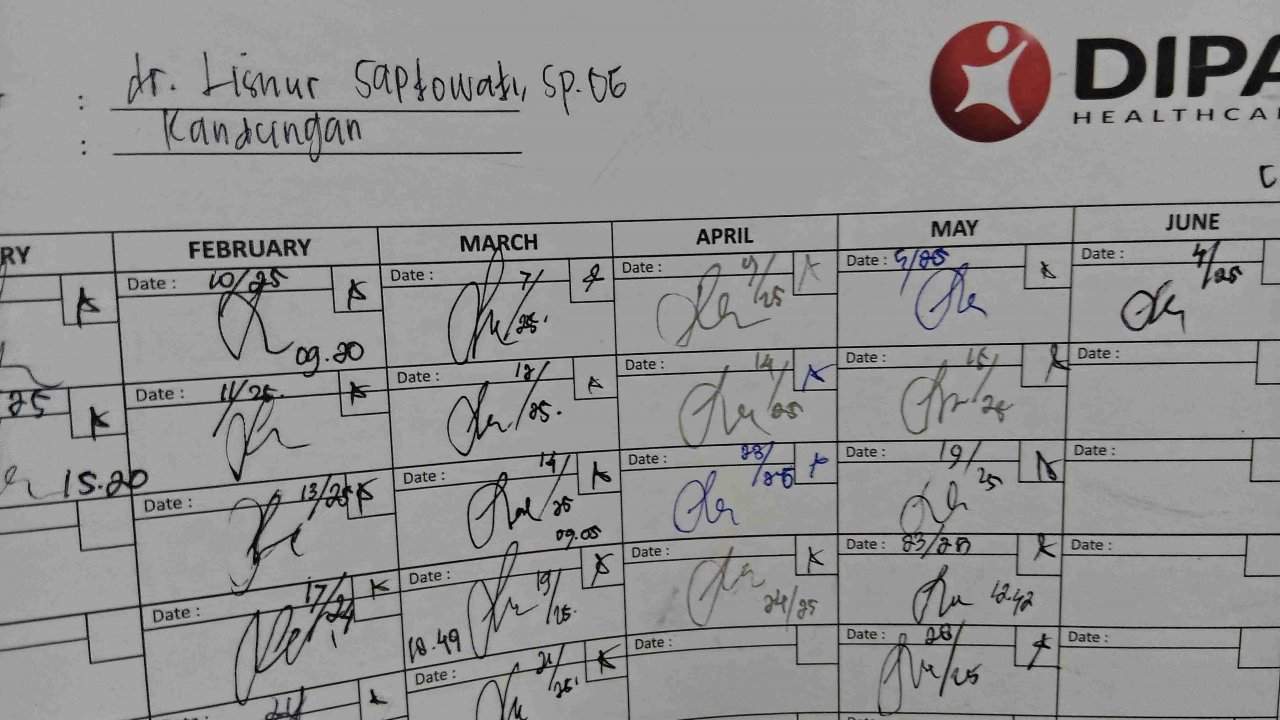 : dr. Lisnur Saptowati, Sp.OG
: Kandungan
DIPA
HEALTHCA
RY FEBRUARY MARCH APRIL MAY JUNE
Date : 10/25 Date : 7/25. Date : 9/25 Date : 9/25 Date : 4/25
09.20
25 Date : 11/25. Date : 12/25. Date : 14/25 Date : 15/25 Date :
15.20 Date : 13/25 Date : 14/25 Date : 23/25 Date : 19/25 Date :
09.05
Date : 17/2 Date : 19/25. Date : 24/25 Date : 23/25 Date :
18.49 12.42
Date : Date : 21/25. Date : Date : 28/25 Date :